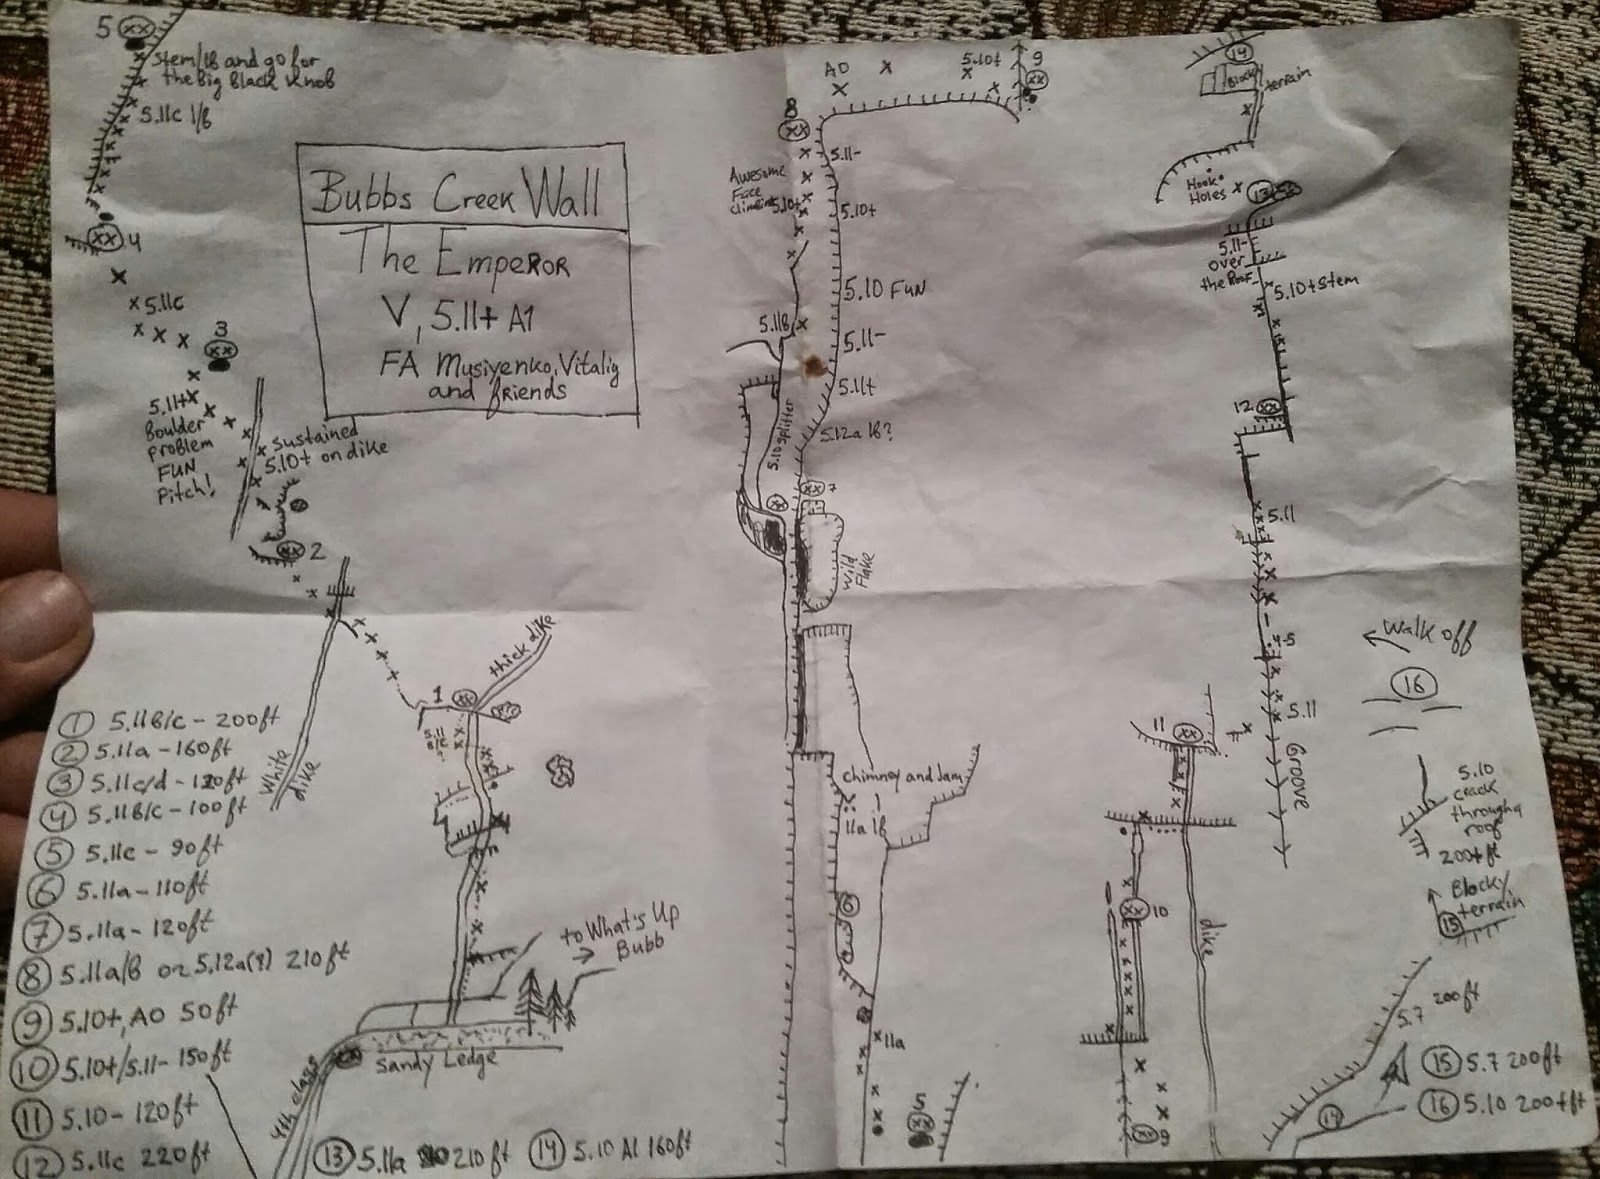 5 XX
Stem/lB and go for
the Big Black Knob
5.11c lB
XX 4
5.11c
3
XX
5.11+
Boulder
problem
FUN
Pitch!
Sustained
5.10+ on dike
XX 2
Bubbs Creek Wall
The Emperor
V, 5.11+ A1
FA Musiyenko, Vitaliy
and friends
thick dike
1 XX
5.11
B/C
White
dike
to What's Up
Bubb
Sandy Ledge
4th class
1 5.11B/C - 200ft
2 5.11a - 160ft
3 5.11c/d - 120ft
4 5.11B/C - 100ft
5 5.11c - 90ft
6 5.11a - 110ft
7 5.11a - 120ft
8 5.11a/B or 5.12a(?) 210ft
9 5.10+, A0 50ft
10 5.10+/5.11- 150ft
11 5.10 - 120ft
12 5.11c 220ft
13 5.11a 210ft
14 5.10 A1 160ft
A0
5.10+
9
XX
8
XX
5.11-
Awesome
Face
climbing
5.10+
5.10+
5.10 FUN
5.11B
5.11-
5.11+
5.10 splitter
5.12a lB?
XX 7
XX
Wild
Flake
Chimney and Jam
11a lB
6
11a
5
XX
14
Block
terrain
Hook
Holes
13
5.11-
over
the Roof
5.10+ stem
12 XX
5.11
5.11
Groove
11 XX
XX 10
dike
XX 9
Walk off
16
5.10
crack
through a
roof
200+ft
Blocky
terrain
15
200ft
5.7
14
15 5.7 200ft
16 5.10 200+ft